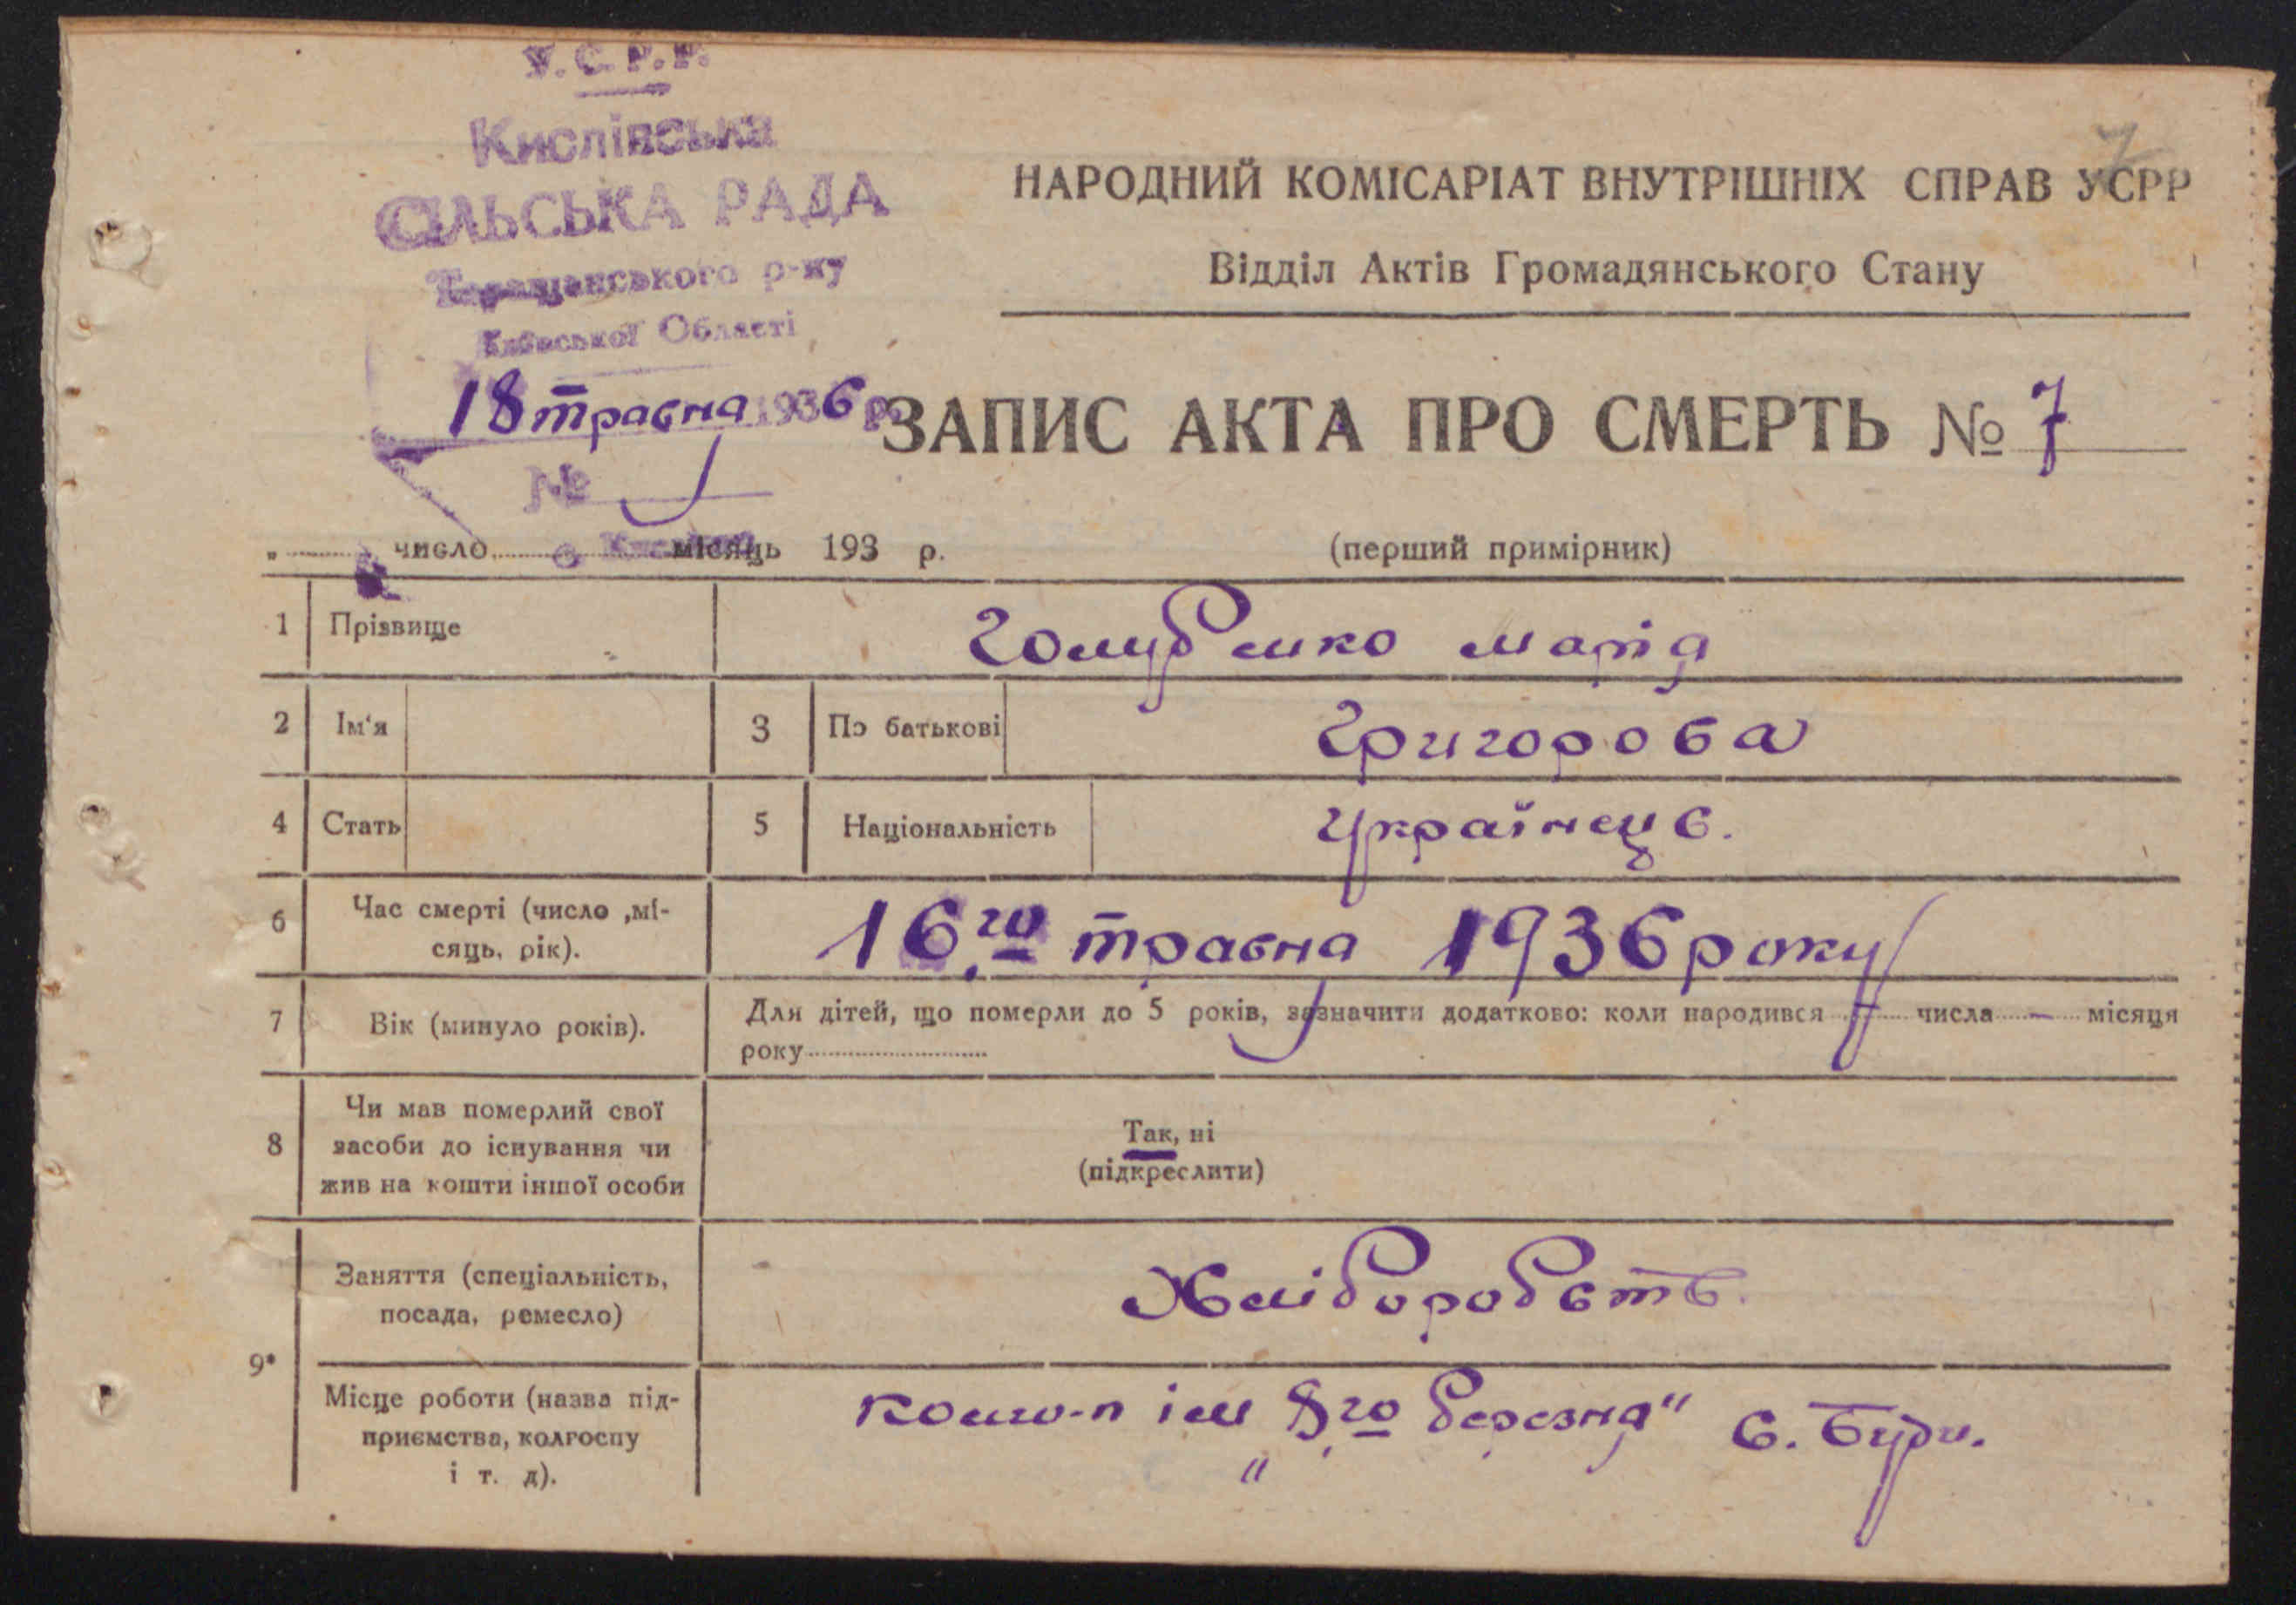 У.С.Р.Р.
Кислівська
СІЛЬСЬКА РАДА
Таращанського р-ну
Київської Області
18 травня 1936 р.
№
7
НАРОДНИЙ КОМІСАРІАТ ВНУТРІШНІХ СПРАВ УСРР
Відділ Актів Громадянського Стану
ЗАПИС АКТА ПРО СМЕРТЬ № 7
„ число місяць 193 р.
(перший примірник)
1 Прізвище Голубенко Марія
2 Ім'я 3 По батькові Григорова
4 Стать 5 Національність Українец в.
6 Час смерті (число ,мі-
сяць, рік).
16го травня 1936 року
7 Вік (минуло років). Для дітей, що померли до 5 років, зазначити додатково: коли народився — числа — місяця
року
8 Чи мав померлий свої
засоби до існування чи
жив на кошти іншої особи
Так, ні
(підкреслити)
9*
Заняття (спеціальність,
посада, ремесло)
Хліборобств.
Місце роботи (назва під-
приємства, колгоспу
і т. д).
колго-п ім „8го березня"